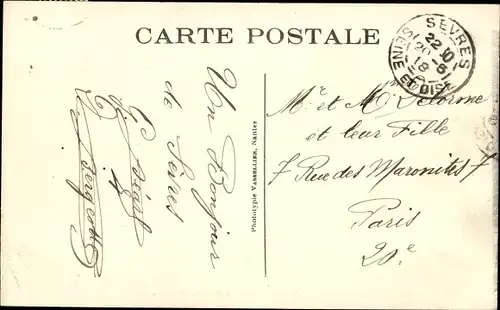 CARTE POSTALE
Un Bonjour
de Sèvres
Phototypie VASSELLIER, Nantes
SEVRES
22 30
20 -5
18
SEINE ET OISE
Mr et Me Delorme
et leur Fille
7 Rue des Maronites 7
Paris
20e